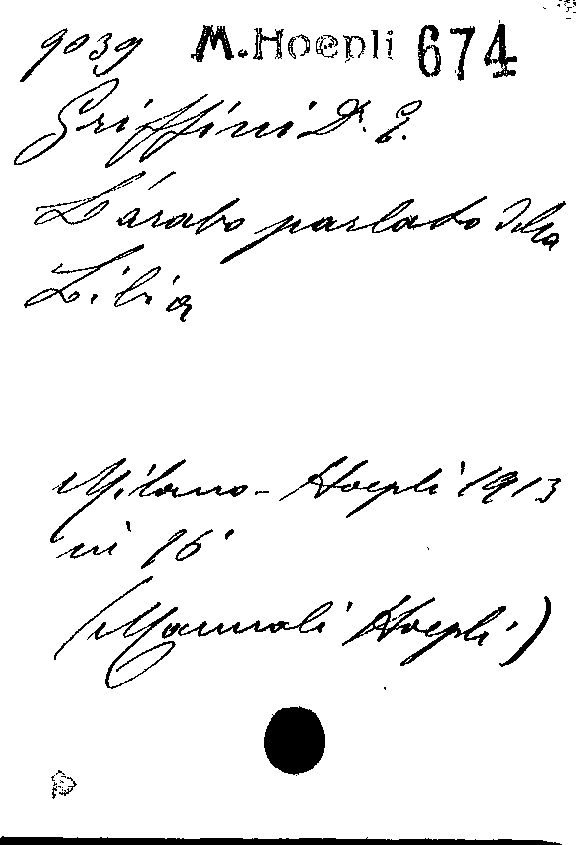 9039 M. Hoepli 674
Griffini Dr. E.
L'arabo parlato della
Libia
Milano - Hoepli 1913
in 16°
(Manuali Hoepli)